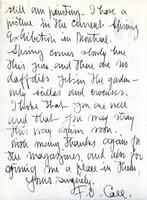 still am painting. I have a
picture in the current Spring
Exhibition in Montreal.
Spring comes slowly here
this year and there are no
daffodils yet in the garden –
only scillas and crocuses.
I hope that you are well
and that you may stay
this way again soon.
With many thanks again for
the magazines, and also for
giving me a place in them
Yours sincerely,
F. O. Call.